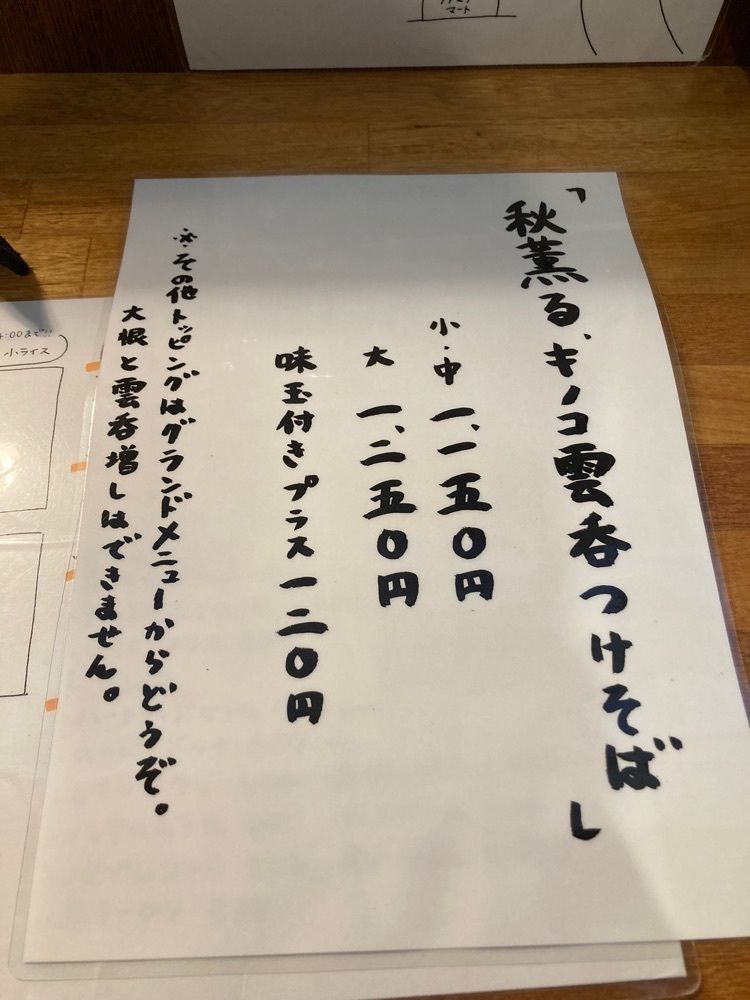 「秋薫る、キノコ雲呑つけそば」
小・中 一、一五〇円
大 一、二五〇円
味玉付きプラス一二〇円
※その他トッピングはグランドメニューからどうぞ。
大根と雲呑増しはできません。
:00まで!!
小ライス
マート